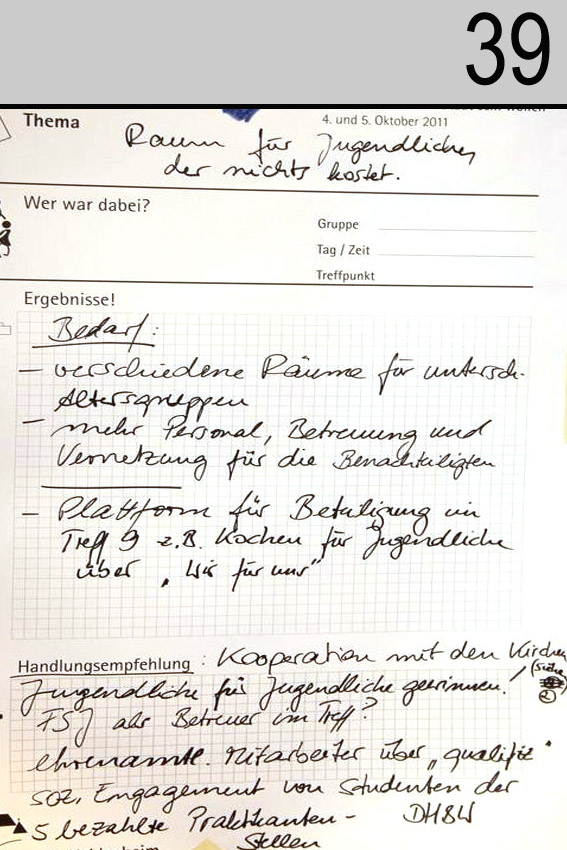 39
Thema
4. und 5. Oktober 2011
Raum für Jugendliche,
der nichts kostet.
Wer war dabei?
Gruppe
Tag / Zeit
Treffpunkt
Ergebnisse!
Bedarf:
– verschiedene Räume für untersch.
Altersgruppen
– mehr Personal, Betreuung und
Vernetzung für die Benachteiligten
– Plattform für Beteiligung im
Treff 9 z.B. Kochen für Jugendliche
über „Wir für uns"
Handlungsempfehlung : Kooperation mit den Kirchen
(siehe
2)
Jugendliche für Jugendliche gewinnen!
FSJ als Betreuer im Treff?
ehrenamtl. Mitarbeiter über „qualifiz"
soz. Engagement von Studenten der
DHBW
5 bezahlte Praktikanten-
Stellen